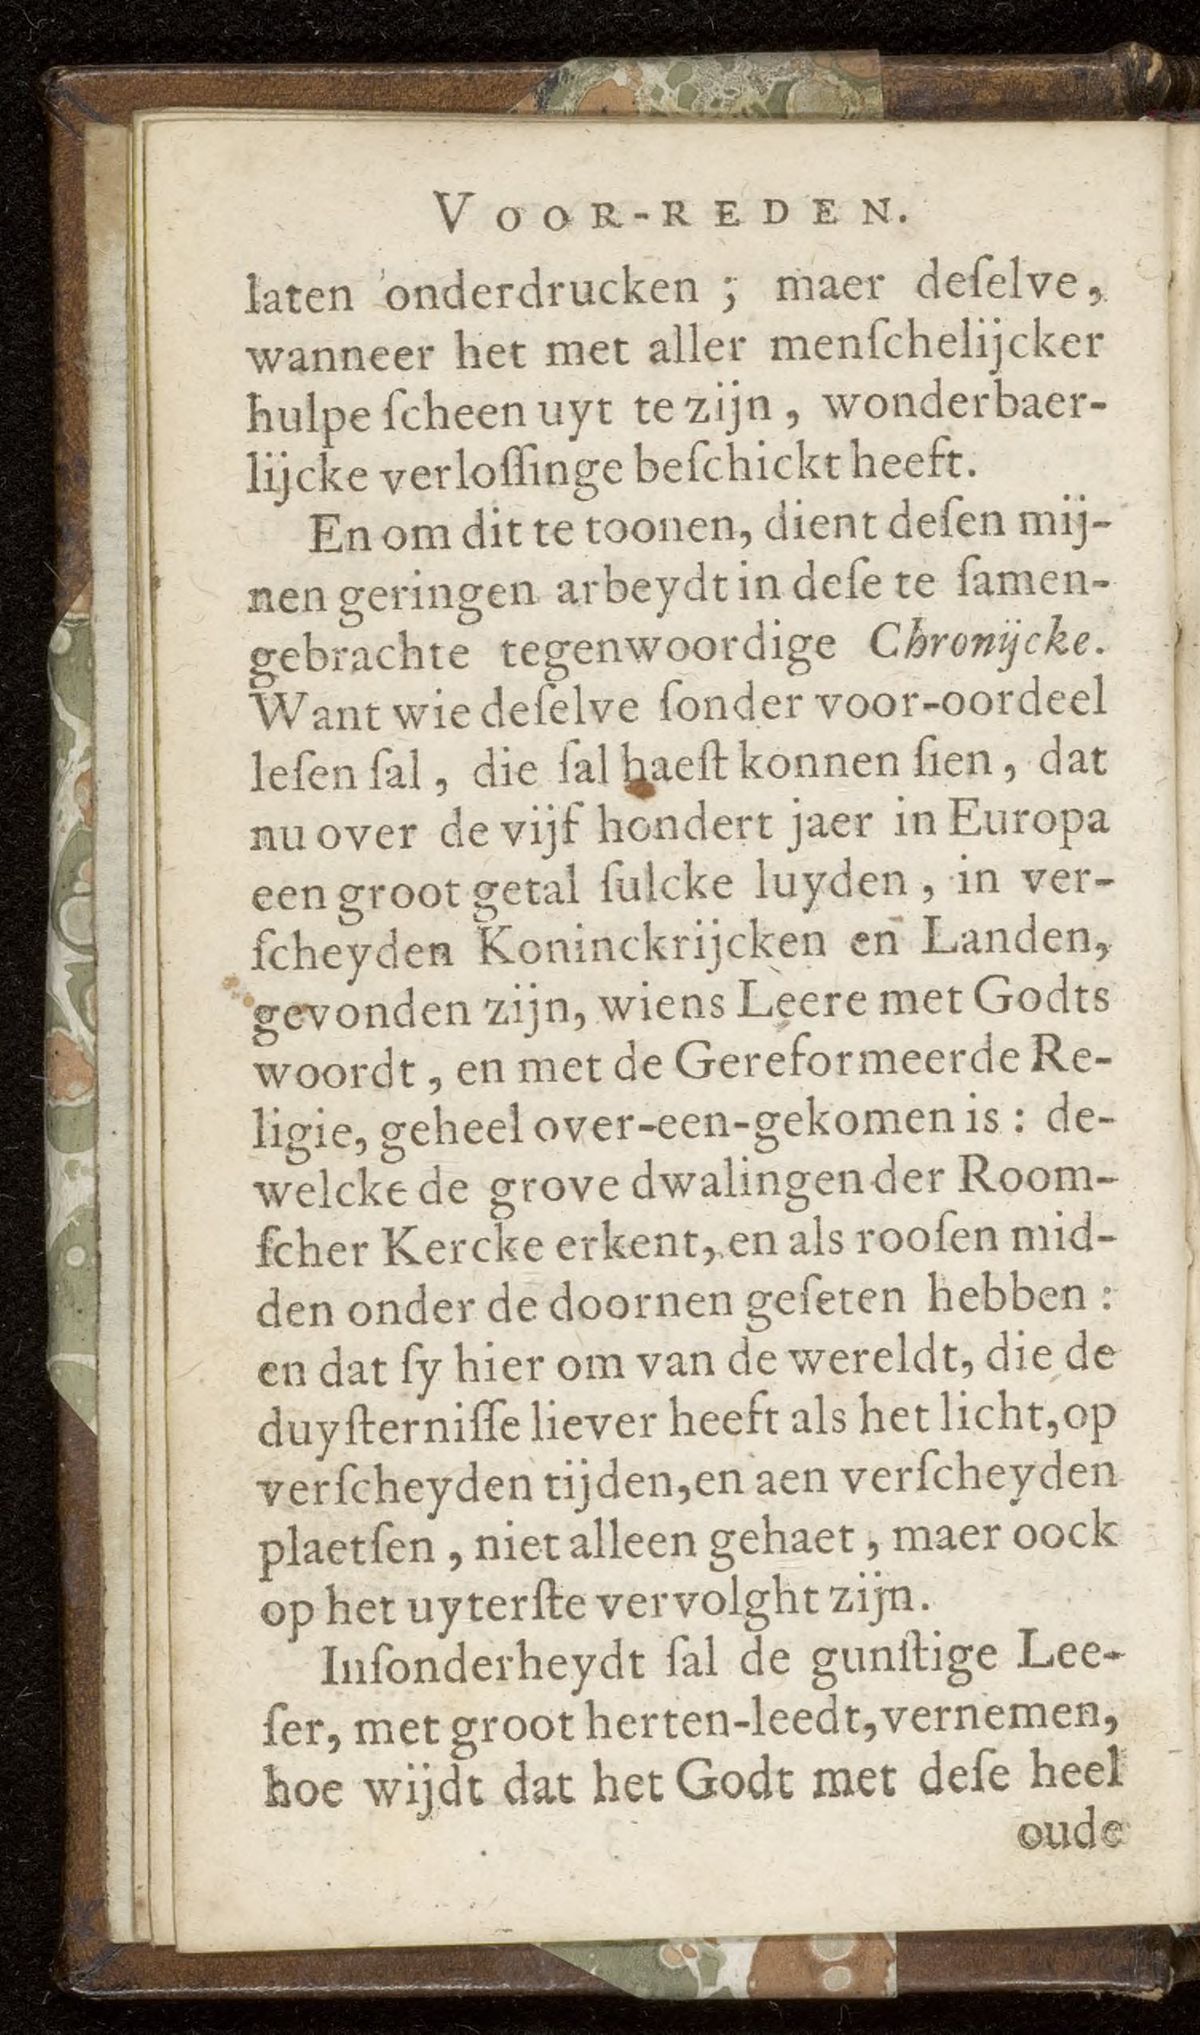 VOOR-REDEN.
laten onderdrucken ; maer deſelve,
wanneer het met aller menſchelijcker
hulpe ſcheen uyt te zijn , wonderbaer-
lijcke verloſſinge beſchickt heeft.
En om dit te toonen, dient deſen mij-
nen geringen arbeydt in deſe te ſamen-
gebrachte tegenwoordige Chronijcke.
Want wie deſelve ſonder voor-oordeel
leſen ſal , die ſal haeſt konnen ſien , dat
nu over de vijf hondert jaer in Europa
een groot getal ſulcke luyden , in ver-
ſcheyden Koninckrijcken en Landen,
gevonden zijn, wiens Leere met Godts
woordt , en met de Gereformeerde Re-
ligie, geheel over-een-gekomen is : de-
welcke de grove dwalingen der Room-
ſcher Kercke erkent, en als rooſen mid-
den onder de doornen geſeten hebben :
en dat ſy hier om van de wereldt, die de
duyſterniſſe liever heeft als het licht, op
verſcheyden tijden, en aen verſcheyden
plaetſen , niet alleen gehaet , maer oock
op het uyterſte vervolght zijn.
Inſonderheydt ſal de gunſtige Lee-
ſer, met groot herten-leedt, vernemen,
hoe wijdt dat het Godt met deſe heel
oude